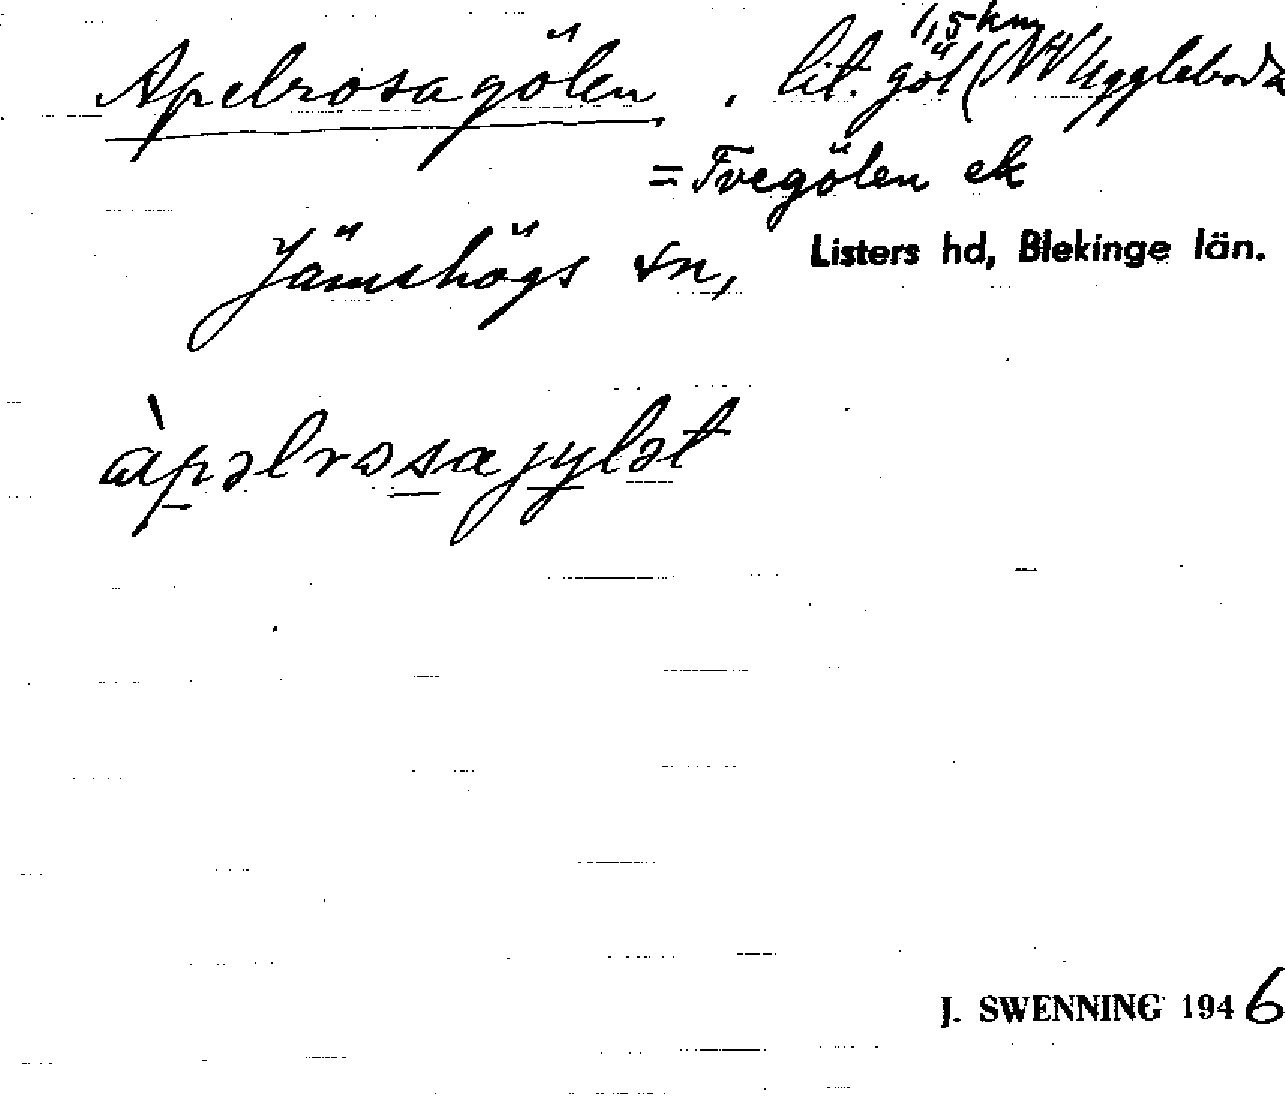 1,5 km
Apelrosagölen, lit. göl (NV Uggleboda
= Tvegölen ek
Jämshögs sn, Listers hd, Blekinge län.
àpəlrosajylət
J. SWENNING 1946